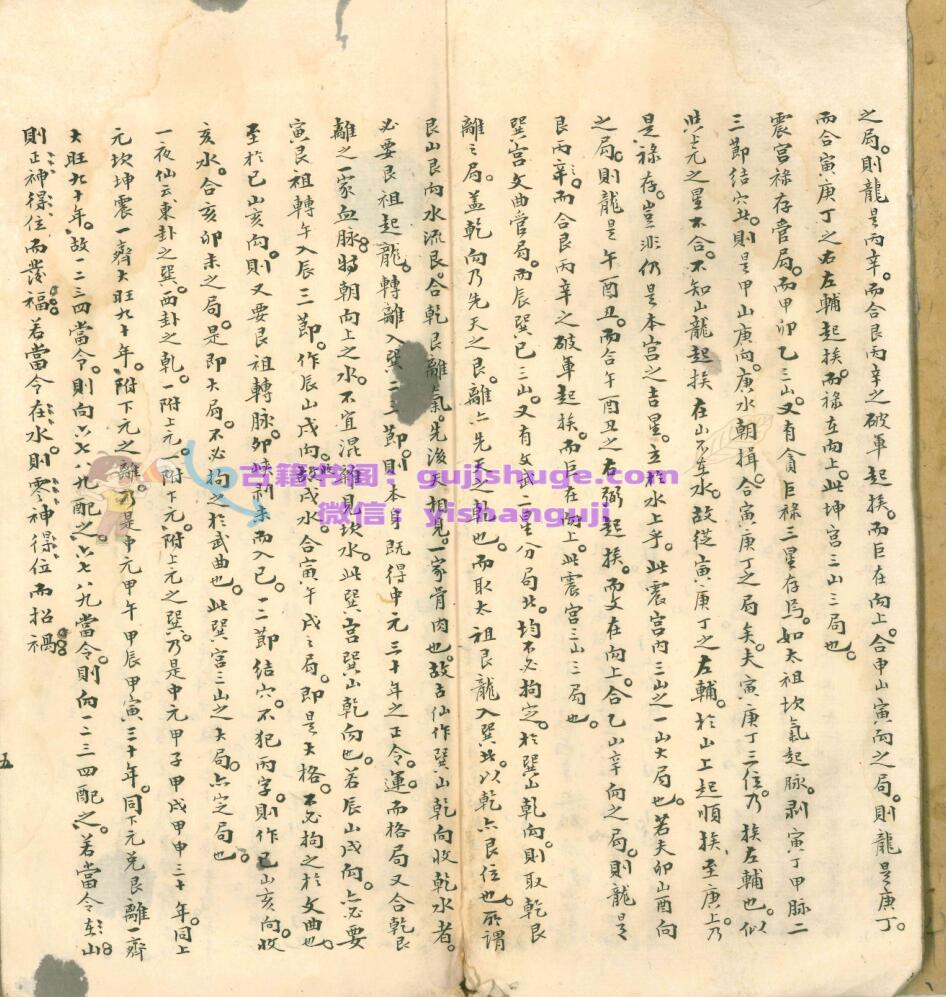 之局。則龍是丙辛。而合艮丙辛之破軍起挨。而巨在向上。合申山寅向之局。則龍是庚丁。
而合寅庚丁之右左輔起挨。而祿在向上。此坤宮三山三局也。
震宮祿存管局。而甲卯乙三山。又有貪巨祿三星存焉。如太祖坎氣起脉。剥寅丁甲脉二
三節結穴。則是甲山庚向。庚水朝揖。合寅庚丁之局矣。夫寅庚丁三位。乃挨左輔也。似
與上元之星不合。不知山龍起挨在山不在水。故從寅庚丁之左輔。於山上起順挨、至庚上。乃
是祿存。豈非仍是本宮之吉星。立於水上乎。此震宮內三山之一山大局也。若夫卯山酉向
之局。則龍是午酉丑。而合午酉丑之右弼起挨。而文在向上。合乙山辛向之局。則龍是
艮丙辛。而合艮丙辛之破軍起挨。而巨在向上。此震宮三山三局也。
巽宮文曲管局。而辰巽巳三山。又有文武二星分局。此均不必拘定。於巽山乾向。則取乾艮
離之局。蓋乾向乃先天之艮。離六先天之乾也。而取太祖艮龍入巽。此以乾六艮位也。所謂
艮山艮向水流艮。合乾艮離氣。先後天相見一家骨肉也。故古仙作巽山乾向收乾水者。
必要艮祖起龍。轉離入巽二三節。則本 既得中元三十年之正令。運而格局又合乾艮
離之一家血脉。特朝向上之水。不宜混雜見坎水。此巽宮巽山乾向也。若辰山戌向。亦必要
寅艮祖轉午入辰三節。作辰山戌向 戌水。合寅午戌之局。即是大格。不必拘之於文曲也。
至於巳山亥向。則又要艮祖轉脉。卯峽剥未而入巳。一二節結穴。不犯丙字。則作巳山亥向。收
亥水。合亥卯未之局。是即大局。不必拘之於武曲也。此巽宮三山之大局。亦定局也。
一夜仙云東卦之巽。西卦之乾。一附上元。一附下元。附上元之巽。乃是中元甲子甲戌甲申三十年。同上
元坎坤震一齊大旺九十年。附下元之 乃是中元甲午甲辰甲寅三十年。同下元兌艮離一齊
大旺九十年。故一二三四當令。則向六七八九配之。六七八九當令。則向一二三四配之。若當令在山。
則正神得位而發福。若當令在水。則零神得位而招禍。
五
古籍书阁：gujishuge.com
微信：yishanguji